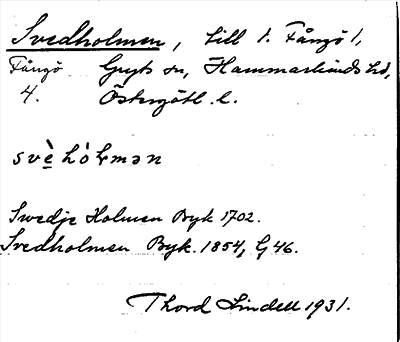 Svedholmen, till 1. Fångö 1,
Fångö Gryts sn, Hammarkinds hd,
4. Östergötl. l.
svè hòlmən
Swedje Holmen Byk 1702.
Svedholmen Byk. 1854, G 46.
Thord Lindell 1931.